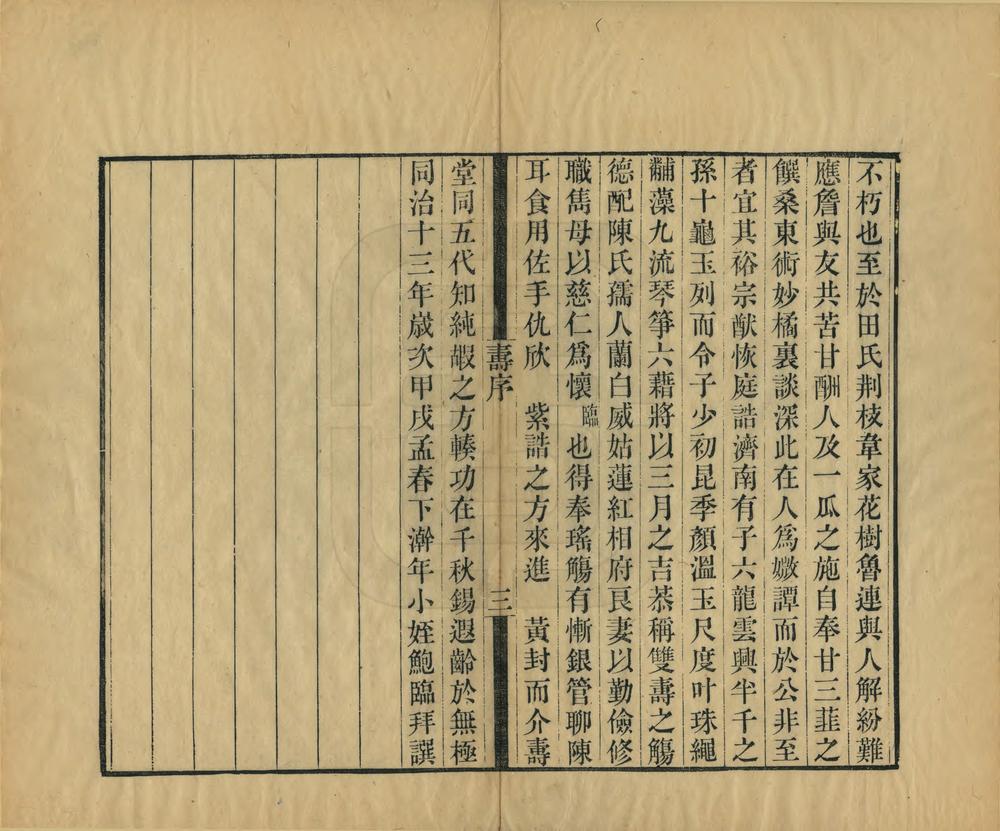 不朽也至於田氏荆枝韋家花樹魯連與人解紛難
應詹與友共苦甘酬人及一瓜之施自奉甘三韭之
饌桑東術妙橘裏談深此在人爲媺譚而於公非至
者宜其裕宗猷恢庭誥濟南有子六龍雲興半千之
孫十龜玉列而令子少初昆季顏溫玉尺度叶珠繩
黼藻九流琴箏六藉將以三月之吉恭稱雙壽之觴
德配陳氏孺人蘭白威姑蓮紅相府良妻以勤儉修
職雋母以慈仁爲懷臨也得奉瑤觴有慚銀管聊陳
耳食用佐手仇欣　紫誥之方來進　黃封而介壽
壽序　三
堂同五代知純嘏之方轃功在千秋錫遐齡於無極
同治十三年歲次甲戌孟春下澣年小姪鮑臨拜譔